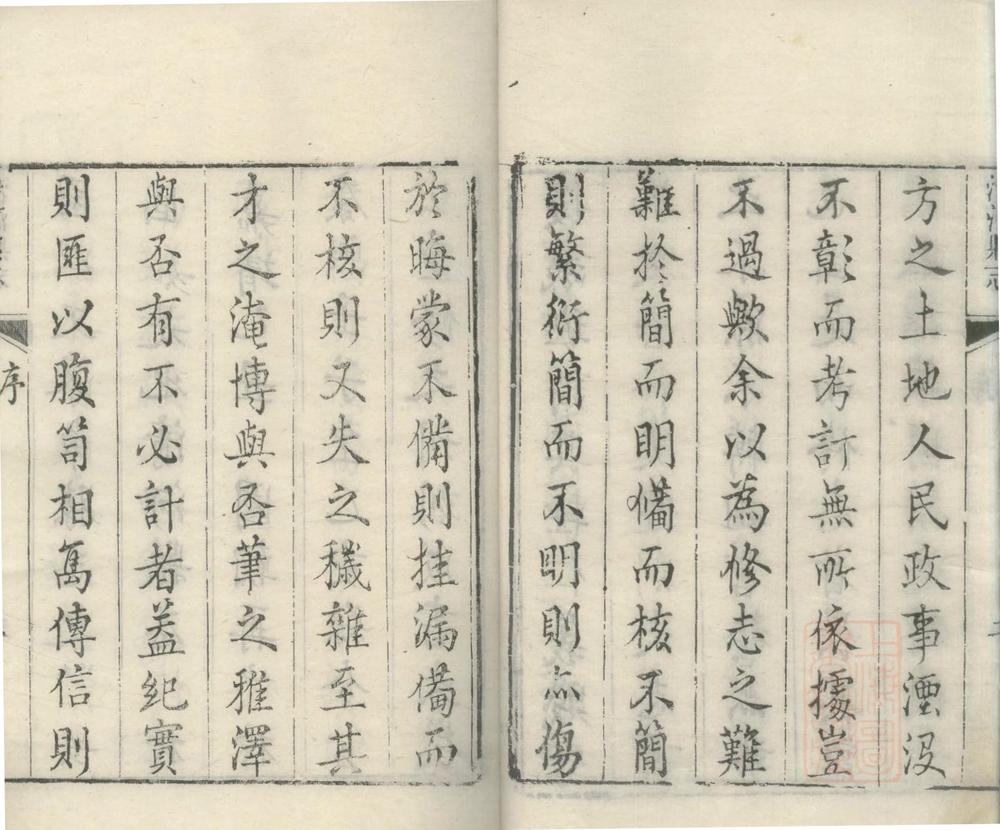 方之土地人民政事湮沒
不彰而考訂無所依據豈
不過歟余以為修志之難
難於簡而明備而核不簡
則繁衍簡而不明則亦傷
於晦蒙不備則挂漏備而
不核則又失之穢雜至其
才之淹博與否筆之雅澤
與否有不必計者葢紀實
則匪以腹笥相高傳信則
序